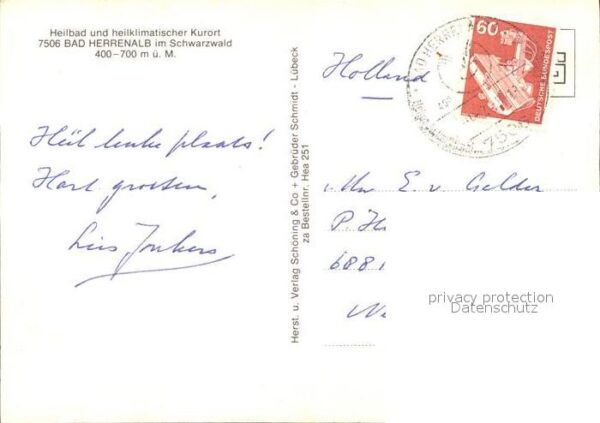 Heilbad und heilklimatischer Kurort
7506 BAD HERRENALB im Schwarzwald
400-700 m ü. M.
Heel leuke plaats!
Hart. groeten,
Lies Jonkers
Herst. u. Verlag Schöning & Co + Gebrüder Schmidt - Lübeck
za Bestellnr. Hea 251
Holland
60
DEUTSCHE BUNDESPOST
BAD HERRE
7506
E. v. Gelder
P. H
6881
privacy protection
Datenschutz